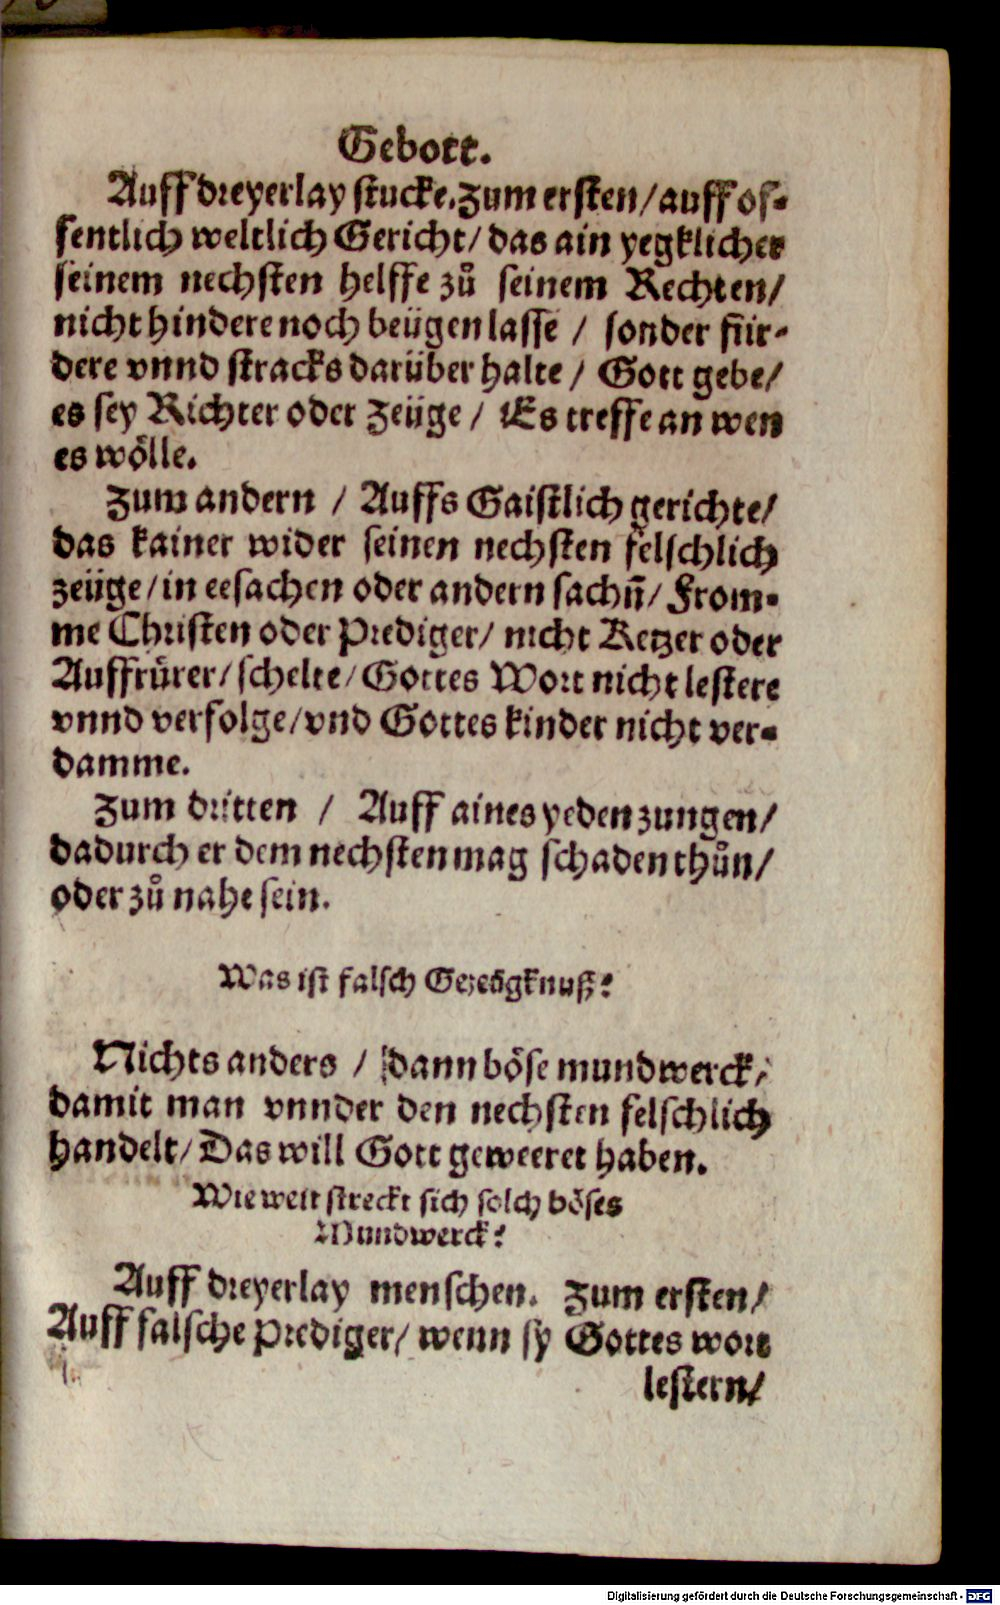 Gebott.
Auff dreyerlay stucke. Zum ersten / auff of-
fentlich weltlich Gericht / das ain yegklicher
seinem nechsten helffe zů seinem Rechten /
nicht hindere noch beügen lasse / sonder für-
dere vnnd stracks darüber halte / Gott gebe /
es sey Richter oder Zeüge / Es treffe an wen
es wölle.
Zum andern / Auffs Gaistlich gerichte /
das kainer wider seinen nechsten felschlich
zeüge / in eesachen oder andern sachñ / From-
me Christen oder Prediger / nicht Ketzer oder
Auffrůrer / schelte / Gottes Wort nicht lestere
vnnd verfolge / vnd Gottes kinder nicht ver-
damme.
Zum dritten / Auff aines yeden zungen /
dadurch er dem nechsten mag schaden thůn /
oder zů nahe sein.
Was ist falsch Gezeügknuß?
Nichts anders / dann böse mundwerck /
damit man vnnder den nechsten felschlich
handelt / Das will Gott geweeret haben.
Wie weit streckt sich solch böses
Mundwerck?
Auff dreyerlay menschen. Zum ersten /
Auff falsche Prediger / wenn sy Gottes wort
lestern /
Digitalisierung gefördert durch die Deutsche Forschungsgemeinschaft - DFG